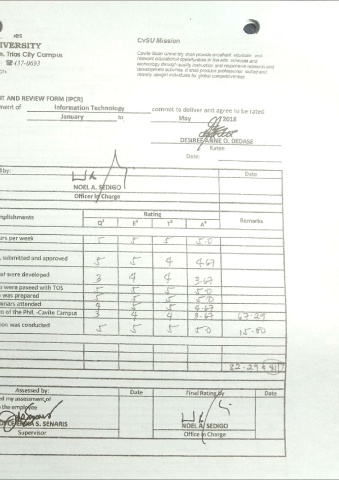 CvSU Mission
IVERSITY
s. Trias City Campus
☎437-0693
Cavite State University shall provide excellent, equitable and
relevant educational opportunities in the arts, sciences and
technology through quality instruction and responsive research and
development activities. It shall produce professional, skilled and
morally upright individuals for global competitiveness.
NT AND REVIEW FORM (IPCR)
ment of Information Technology commit to deliver and agree to be rated
January to May 2018
DESIREE ANNE O. DEDASE
Ratee
Date:
ed by: Date
NOEL A. SEDIGO
Officer in Charge
mplishments Rating Remarks
Q¹ E² T³ A⁴
urs per week 5 5 5 5.0
, submitted and approved 5 5 4 4.67
at were developed 3 4 4 3.67
s were passed with TOS 5 5 5 5.0
was prepared 5 5 5 5.0
minars attended 4 5 5 4.67
m of the Phil. -Cavite Campus 3 4 4 3.67 67.29
ion was conducted 5 5 5 5.0 15.00
82.29
Assessed by: Date Final Rating By Date
ed my assessment of
the employee
S. SENARIS
Supervisor
NOEL A. SEDIGO
Office in Charge